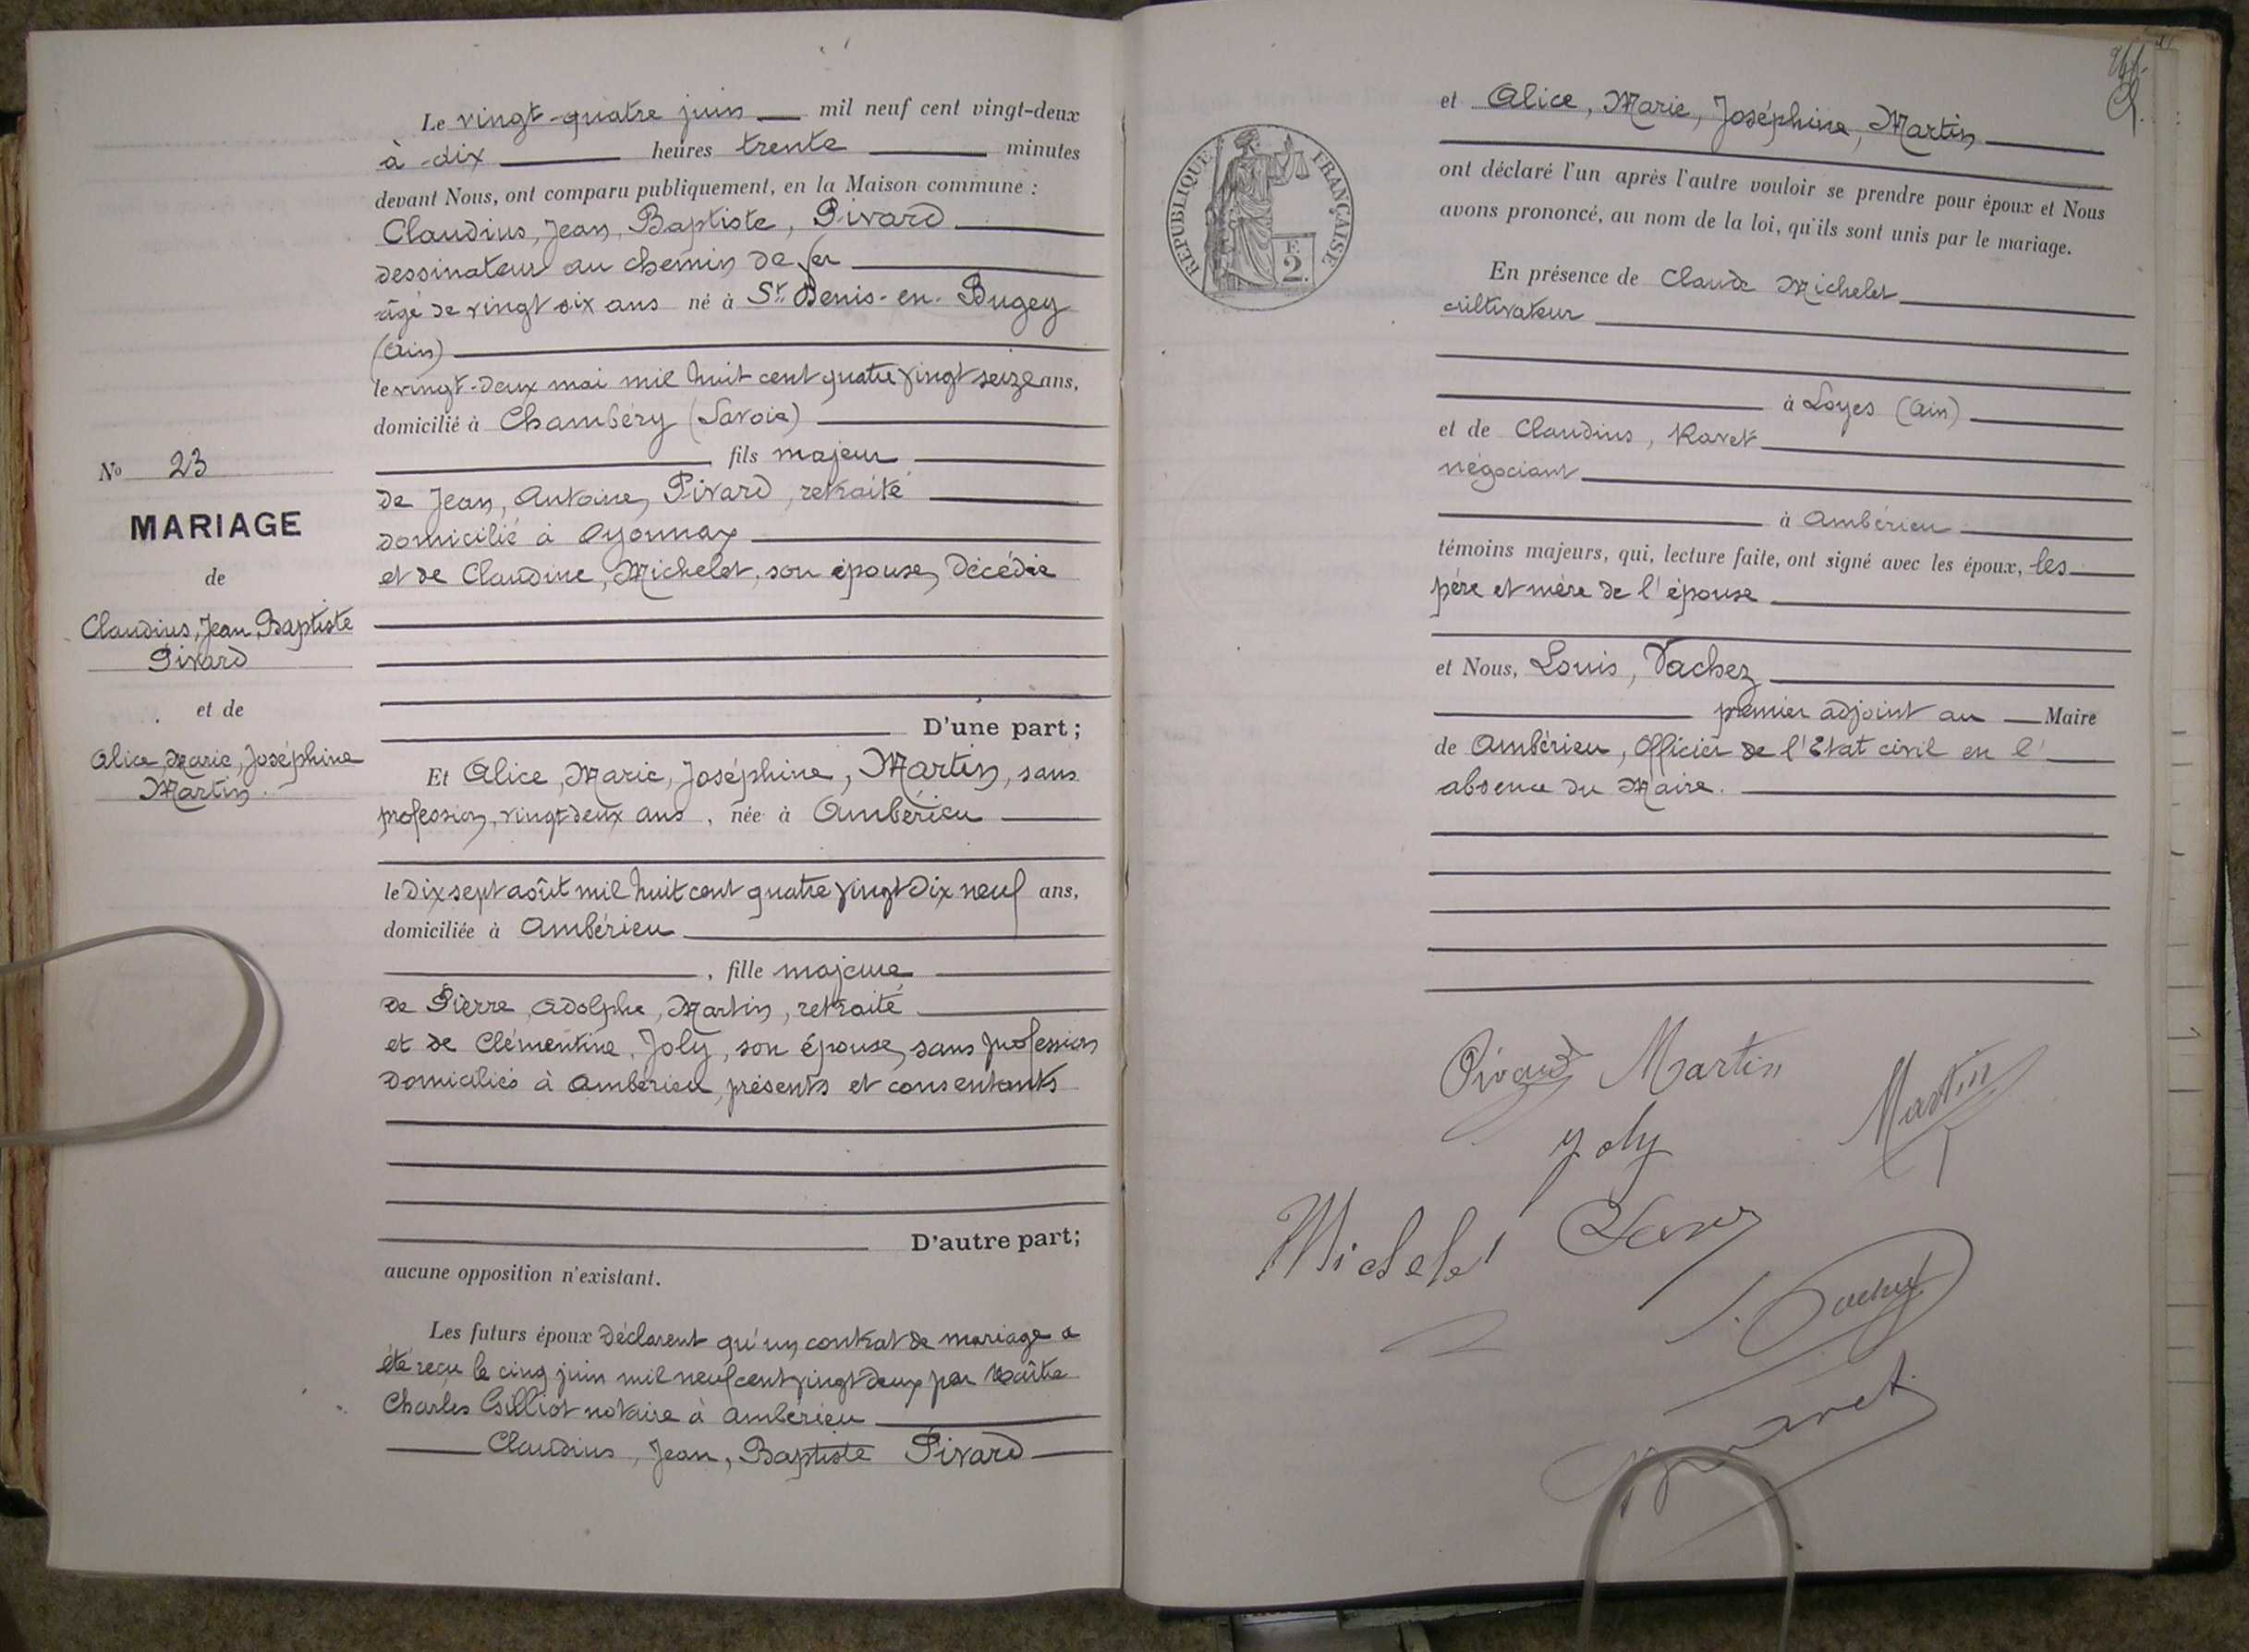 Le vingt-quatre juin mil neuf cent vingt-deux
à dix heures trente minutes
devant Nous, ont comparu publiquement, en la Maison commune :
Claudius, Jean, Baptiste, Pivard
dessinateur au chemin de fer
âgé de vingt six ans né à St Denis-en-Bugey
(Ain)
le vingt-deux mai mil huit cent quatre vingt seize ans,
domicilié à Chambéry (Savoie)
fils majeur
de Jean, Antoine, Pivard, retraité
domicilié à Oyonnax
et de Claudine, Michelet, son épouse, décédée
D'une part ;
No 23
MARIAGE
de
Claudius, Jean, Baptiste
Pivard
et de
Alice, Marie, Joséphine
Martin.
Et Alice, Marie, Joséphine, Martin, sans
profession, vingt-deux ans, née à Ambérieu
le dix sept août mil huit cent quatre vingt dix neuf ans,
domiciliée à Ambérieu
, fille majeure
de Pierre, Adolphe, Martin, retraité
et de Clémentine, Joly, son épouse, sans profession
domiciliés à Ambérieu, présents et consentants
D'autre part;
aucune opposition n'existant.
Les futurs époux déclarent qu'un contrat de mariage a
été reçu le cinq juin mil neuf cent vingt deux par Maître
Charles Gilliot notaire à Ambérieu
Claudius, Jean, Baptiste Pivard
RÉPUBLIQUE FRANÇAISE
F.
2.
et Alice, Marie, Joséphine, Martin
ont déclaré l'un après l'autre vouloir se prendre pour époux et Nous
avons prononcé, au nom de la loi, qu'ils sont unis par le mariage.
En présence de Claude Michelet
cultivateur
à Loyes (Ain)
et de Claudius, Ravet
négociant
à Ambérieu
témoins majeurs, qui, lecture faite, ont signé avec les époux, les
père et mère de l'épouse
et Nous, Louis, Vachez
premier adjoint au Maire
de Ambérieu, Officier de l'Etat civil en l'
absence du Maire.
Pivard Martin
Martin
Joly
Michelet
Ravet